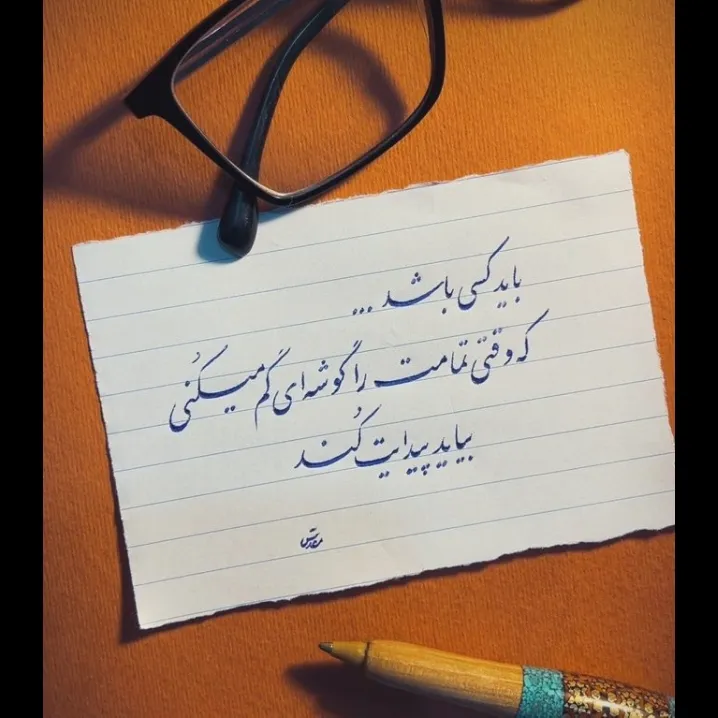 باید کسی باشد ...
که وقتی تمامت را گوشه‌ای گُم میکُنی
بیاید پیدایت کُند